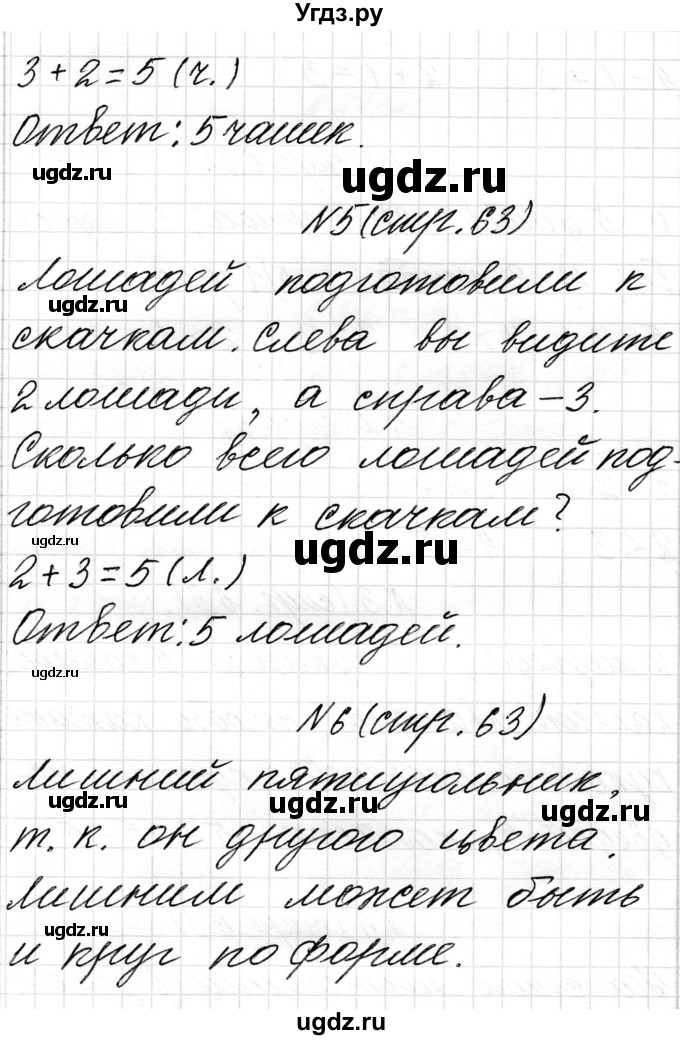 Угдз.ру
3 + 2 = 5 (ч.)
Ответ: 5 чашек.
ugdz.ru
ugdz.ru
N5 (стр. 63)
Лошадей подготовили к
ugdz.ru
скачкам. Слева вы видите
2 лошади, а справа – 3.
Сколько всего лошадей под-
готовили к скачкам?
ugdz.ru
ugdz.ru
2 + 3 = 5 (л.)
Ответ: 5 лошадей.
ugdz.ru
N6 (стр. 63)
Лишний пятиугольник,
ugdz.ru
ugdz.ru
ugdz.ru
т. к. он другого цвета.
Лишним может быть
ugdz.ru
и круг по форме.
ugdz.ru